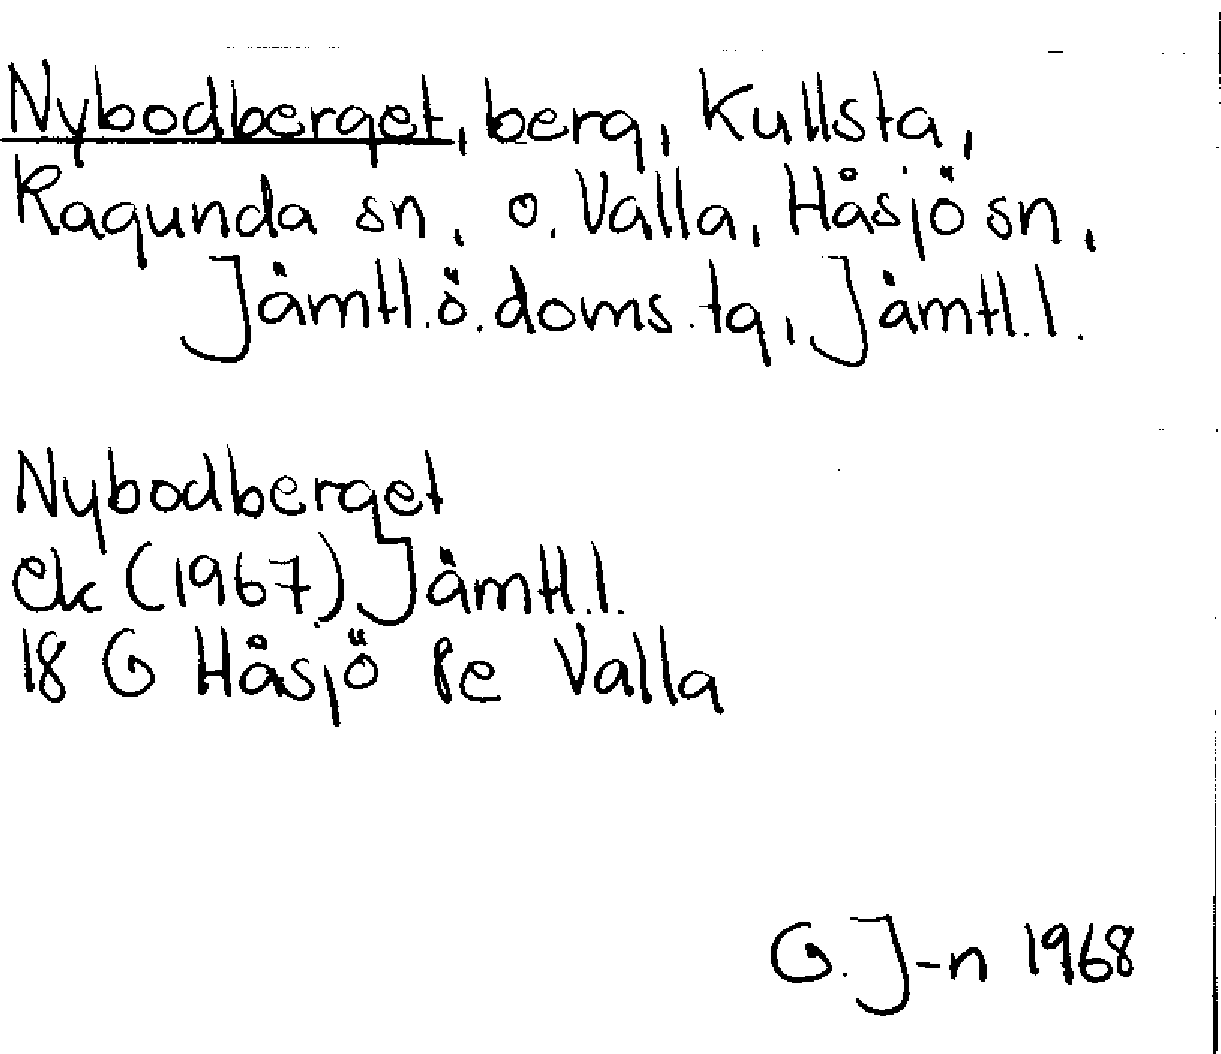 Nybodberget, berg, Kullsta,
Ragunda sn, o. Valla, Håsjö sn,
Jämtl. ö. doms. tg, Jämtl. l.
Nybodberget
ek (1967) Jämtl. l.
18 G Håsjö 8e Valla
G. J-n 1968